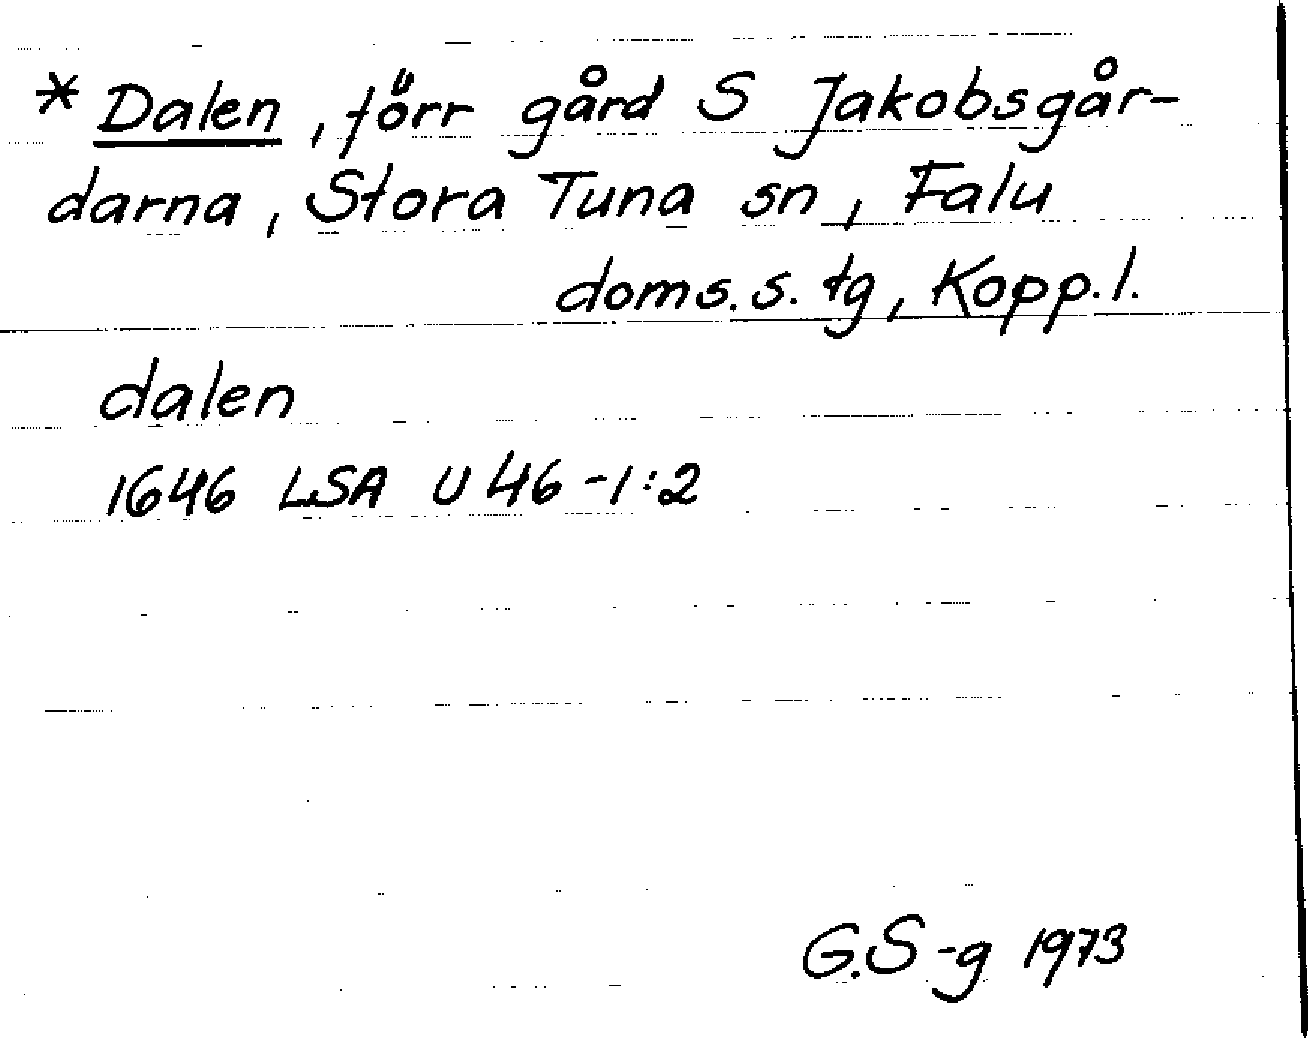 * Dalen, förr gård S Jakobsgår-
darna, Stora Tuna sn, Falu
doms.s. tg, Kopp.l.
dalen
1646 LSA U 46-1:2
G.S-g 1973